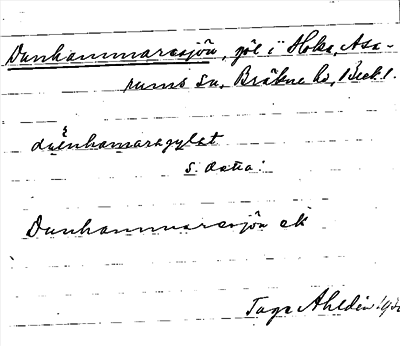 Dunhammarsjön, göl i Hoka, Asa-
rums sn, Bräkne hd, Blek l.
duenhamaragylet
s. östra:
Dunhammarsjön ek
Tage Ahldén 19